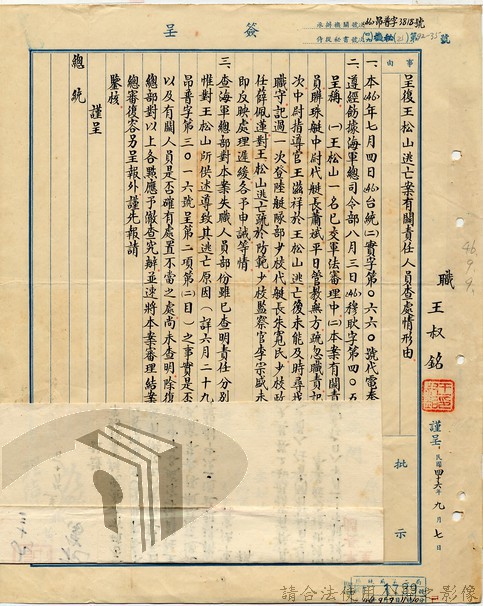 簽呈
(46)昂普字3818號
事由
呈復王松山逃亡案有關責任人員查處情形由
一、本(46)年七月四日(46)台統(二)實字第〇六六〇號代電奉
二、遵經飭據海軍總司令部八月三日(46)穆耿字第四〇五
呈稱(一)王松山一名已交軍法審理中(二)本案有關責
員聯珠艇中尉代艇長蕭斌平日管教無方疏忽職責記
次中尉指導官王滋祥於王松山逃亡後未能及時尋
職守記過一次登陸艇隊部少校代艇長朱寬民少校政
任薛佩蓮對王松山逃亡疏於防範少校監察官李宗盛未
即反映處理遲緩各予申誡等情
三、查海軍總部對本案失職人員部份雖已查明責任分別
惟對王松山所供述導致其逃亡原因(詳六月二十九
昂普字第三〇一六號呈第二項第(二)目)之事實是
以及有關人員是否確有處置不當之處尚未查明除復
總部對以上各點應予徹查究辦並速將本案審理結案
總審復容另呈報外謹先報請
鑒核
謹呈
總統
職王叔銘
謹呈
民國四十六年九月七日
批示
46.9.9.
請合法使用檔案之影像